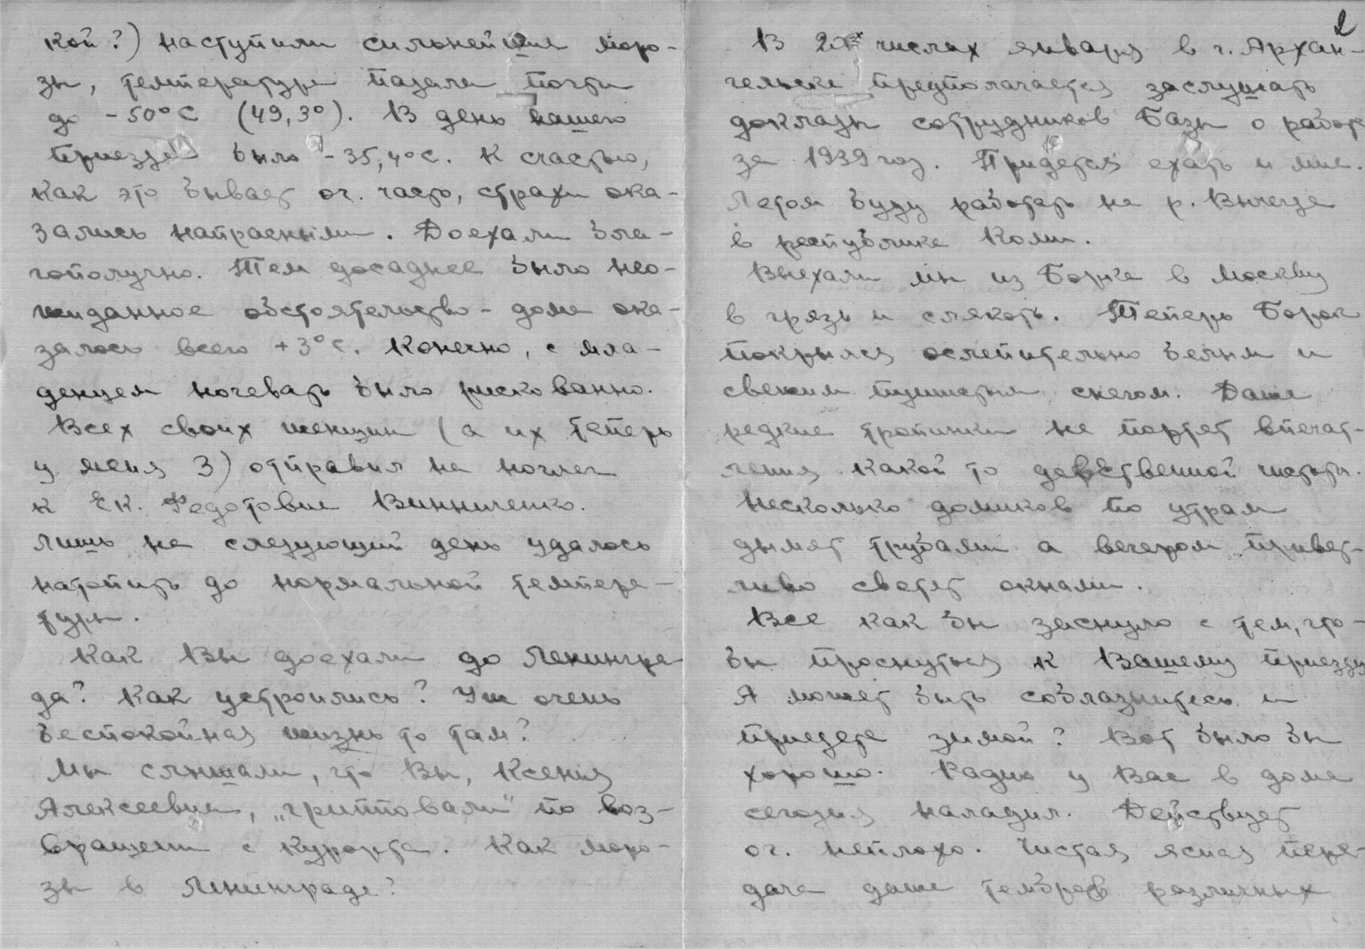 кой?) наступили сильнейшие моро-
зы, температура падала почти
до -50°С (49,3°). В день нашего
приезда было -35,4°С. К счастью,
как это бывает оч. часто, страхи ока-
зались напрасными. Доехали бла-
гополучно. Тем досаднее было нео-
жиданное обстоятельство - дома ока-
залось всего +3°С. Конечно, с мла-
денцем ночевать было рискованно.
Всех своих женщин (а их теперь
у меня 3) отправил на ночлег
к Ек. Федотовне Винниченко.
Лишь на следующий день удалось
натопить до нормальной темпера-
туры.
Как Вы доехали до Ленингра-
да? Как устроились? Уж очень
беспокойная жизнь то там?
Мы слышали, что Вы, Ксения
Алексеевна, „грипповали" по воз-
вращении с курорта. Как моро-
зы в Ленинграде?
2
В 20х числах января в г. Архан-
гельске предполагается заслушать
доклады сотрудников Базы о работе
за 1939 год. Придется ехать и мне.
Летом буду работать на р. Вычегде
в республике Коми.
Выехали мы из Борка в Москву
в грязь и слякоть. Теперь Борок
покрылся ослепительно белым и
свежим пушистым снегом. Даже
редкие тропинки не портят впечат-
ления какой то девственной чистоты.
Несколько домиков по утрам
дымят трубами а вечером привет-
ливо светят окнами.
Все как бы заснуло с тем, что-
бы проснуться к Вашему приезду
А может быть соблазнитесь и
приедете зимой? Вот было бы
хорошо. Радио у Вас в доме
сегодня наладил. Действует
оч. неплохо. Чистая ясная пере-
дача даже тембров различных